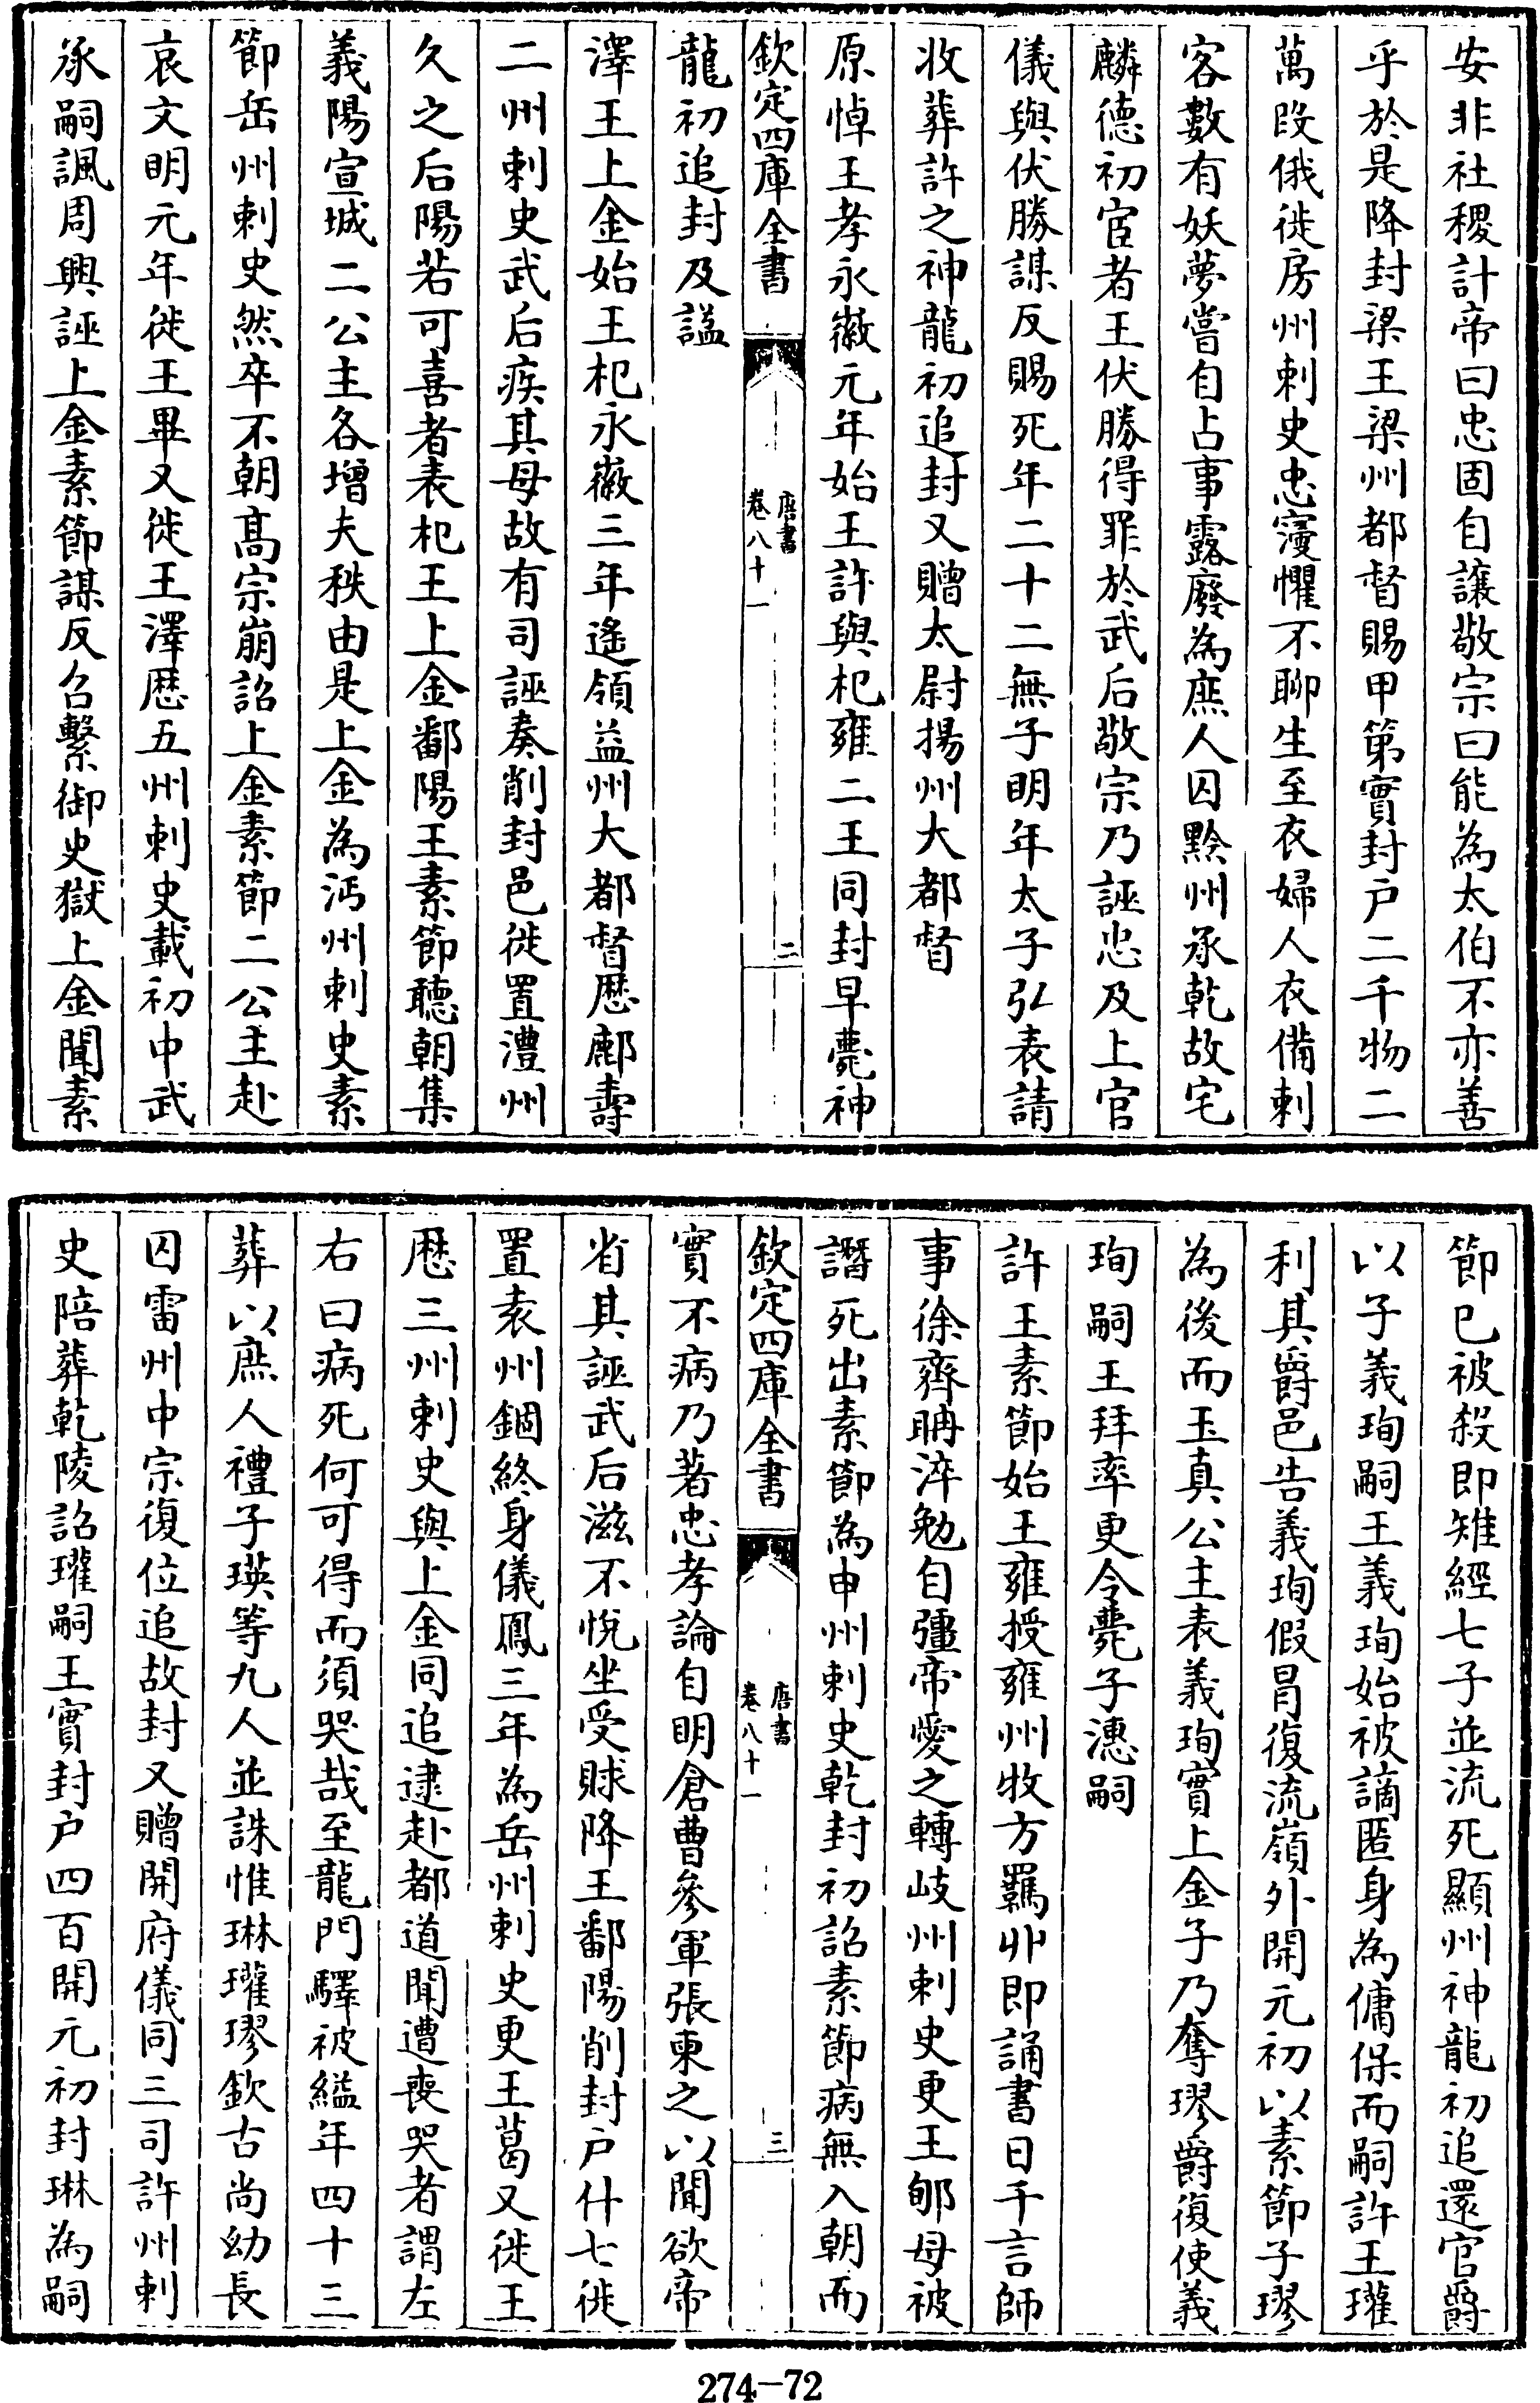 安非社稷計帝曰忠固自讓敬宗曰能為太伯不亦善
乎於是降封梁王梁州都督賜甲第實封户二千物二
萬段俄徙房州刺史忠寖懼不聊生至衣婦人衣備刺
客數有妖夢嘗自占事露廢為庶人囚黔州承乾故宅
麟德初宦者王伏勝得罪於武后敬宗乃誣忠及上官
儀與伏勝謀反賜死年二十二無子明年太子弘表請
收葬許之神龍初追封又贈太尉揚州大都督
原悼王孝永徽元年始王許與杞雍二王同封早薨神
欽定四庫全書
唐書
卷八十一
二
龍初追封及諡
澤王上金始王杞永徽三年遙領益州大都督歴鄜壽
二州刺史武后疾其母故有司誣奏削封邑徙置澧州
久之后陽若可喜者表杞王上金鄱陽王素節聽朝集
義陽宣城二公主各增夫秩由是上金為沔州刺史素
節岳州刺史然卒不朝髙宗崩詔上金素節二公主赴
哀文明元年徙王畢又徙王澤歴五州刺史載初中武
承嗣諷周興誣上金素節謀反召繫御史獄上金聞素
節已被殺即雉經七子並流死顯州神龍初追還官爵
以子義珣嗣王義珣始被謫匿身為傭保而嗣許王瓘
利其爵邑告義珣假冒復流嶺外開元初以素節子璆
為後而玉真公主表義珣實上金子乃奪璆爵復使義
珣嗣王拜率更令薨子潓嗣
許王素節始王雍授雍州牧方羈丱即誦書日千言師
事徐齊聃淬勉自彊帝愛之轉岐州刺史更王郇母被
譖死出素節為申州刺史乾封初詔素節病無入朝而
欽定四庫全書
唐書
卷八十一
三
實不病乃著忠孝論自明倉曹參軍張柬之以聞欲帝
省其誣武后滋不悅坐受賕降王鄱陽削封户什七徙
置袁州錮終身儀鳳三年為岳州刺史更王葛又徙王
歴三州刺史與上金同追逮赴都道聞遭喪哭者謂左
右曰病死何可得而須哭哉至龍門驛被縊年四十三
葬以庶人禮子瑛等九人並誅惟琳瓘璆欽古尚幼長
囚雷州中宗復位追故封又贈開府儀同三司許州刺
史陪葬乾陵詔瓘嗣王實封户四百開元初封琳為嗣
274-72